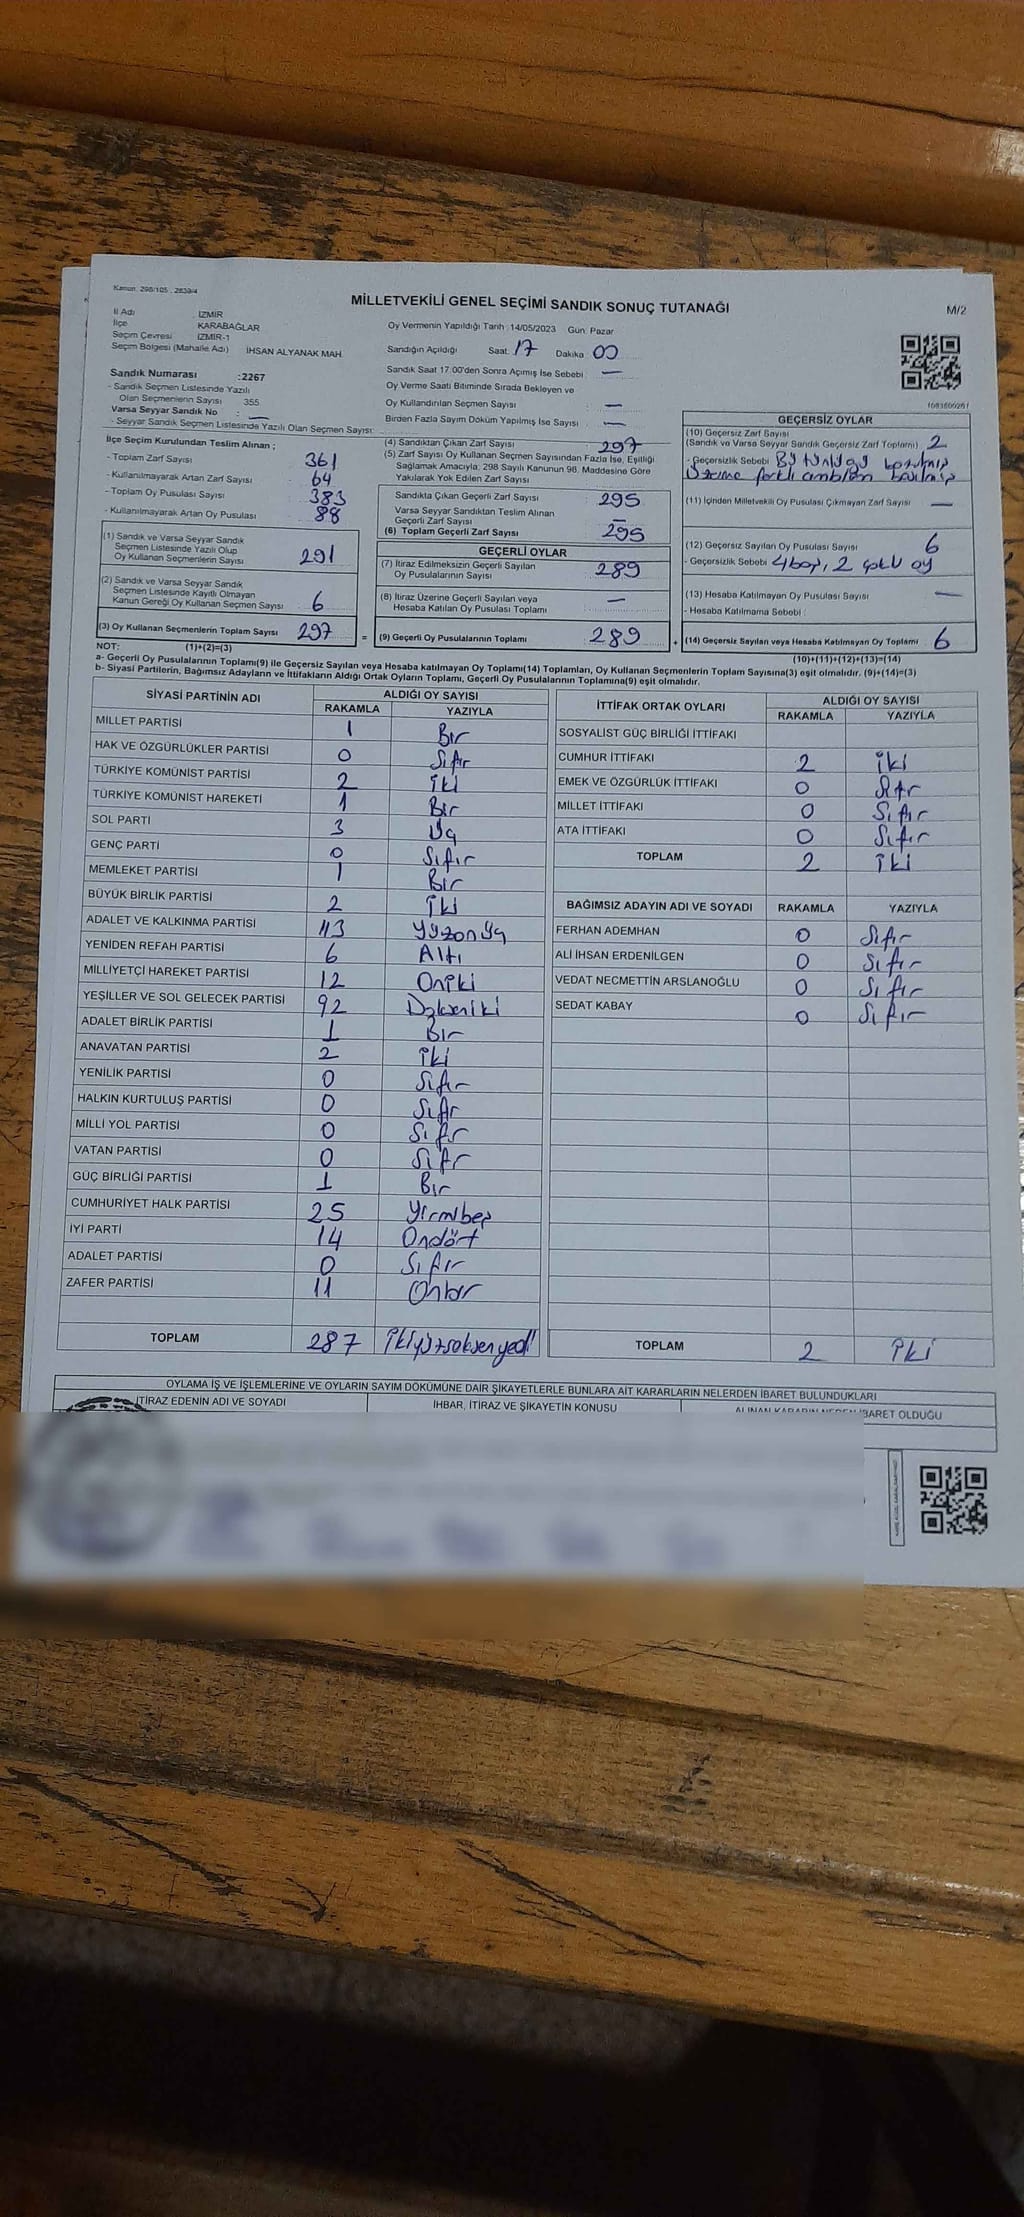 Kanun: 298/105 . 2839/4
MİLLETVEKİLİ GENEL SEÇİMİ SANDIK SONUÇ TUTANAĞI
M/2
İl Adı : İZMİR
İlçe KARABAĞLAR
Seçim Çevresi İZMİR-1
Seçim Bölgesi (Mahalle Adı) İHSAN ALYANAK MAH.
Oy Vermenin Yapıldığı Tarih : 14/05/2023 Gün: Pazar
Sandığın Açıldığı Saat: 17 Dakika 00
Sandık Saat 17:00'den Sonra Açımış İse Sebebi —
Oy Verme Saati Bitiminde Sırada Bekleyen ve
Oy Kullandırılan Seçmen Sayısı —
Birden Fazla Sayım Döküm Yapılmış İse Sayısı —
Sandık Numarası :2267
- Sandık Seçmen Listesinde Yazılı
Olan Seçmenlerin Sayısı 355
Varsa Seyyar Sandık No : —
- Seyyar Sandık Seçmen Listesinde Yazılı Olan Seçmen Sayısı:
İlçe Seçim Kurulundan Teslim Alınan ;
- Toplam Zarf Sayısı 361
- Kullanılmayarak Artan Zarf Sayısı 64
- Toplam Oy Pusulası Sayısı 383
- Kullanılmayarak Artan Oy Pusulası 88
(1) Sandık ve Varsa Seyyar Sandık
Seçmen Listesinde Yazılı Olup
Oy Kullanan Seçmenlerin Sayısı 291
(2) Sandık ve Varsa Seyyar Sandık
Seçmen Listesinde Kayıtlı Olmayan
Kanun Gereği Oy Kullanan Seçmen Sayısı 6
(3) Oy Kullanan Seçmenlerin Toplam Sayısı 297
(1)+(2)=(3)
(4) Sandıktan Çıkan Zarf Sayısı 297
(5) Zarf Sayısı Oy Kullanan Seçmen Sayısından Fazla İse, Eşitliği
Sağlamak Amacıyla; 298 Sayılı Kanunun 98. Maddesine Göre
Yakılarak Yok Edilen Zarf Sayısı
Sandıkta Çıkan Geçerli Zarf Sayısı 295
Varsa Seyyar Sandıktan Teslim Alınan
Geçerli Zarf Sayısı —
(6) Toplam Geçerli Zarf Sayısı 295
GEÇERLİ OYLAR
(7) İtiraz Edilmeksizin Geçerli Sayılan
Oy Pusulalarının Sayısı 289
(8) İtiraz Üzerine Geçerli Sayılan veya
Hesaba Katılan Oy Pusulası Toplamı —
= (9) Geçerli Oy Pusulalarının Toplamı 289
GEÇERSİZ OYLAR
(10) Geçersiz Zarf Sayısı
(Sandık ve Varsa Seyyar Sandık Geçersiz Zarf Toplamı) 2
- Geçersizlik Sebebi
(11) İçinden Milletvekili Oy Pusulası Çıkmayan Zarf Sayısı —
(12) Geçersiz Sayılan Oy Pusulası Sayısı 6
- Geçersizlik Sebebi 4 boş, 2 çoklu oy
(13) Hesaba Katılmayan Oy Pusulası Sayısı —
- Hesaba Katılmama Sebebi :
+ (14) Geçersiz Sayılan veya Hesaba Katılmayan Oy Toplamı 6
(10)+(11)+(12)+(13)=(14)
NOT:
a- Geçerli Oy Pusulalarının Toplamı(9) ile Geçersiz Sayılan veya Hesaba katılmayan Oy Toplamı(14) Toplamları, Oy Kullanan Seçmenlerin Toplam Sayısına(3) eşit olmalıdır. (9)+(14)=(3)
b- Siyasi Partilerin, Bağımsız Adayların ve İttifakların Aldığı Ortak Oyların Toplamı, Geçerli Oy Pusulalarının Toplamına(9) eşit olmalıdır.
SİYASİ PARTİNİN ADI ALDIĞI OY SAYISI
RAKAMLA YAZIYLA
MİLLET PARTİSİ 1 Bir
HAK VE ÖZGÜRLÜKLER PARTİSİ 0 Sıfır
TÜRKİYE KOMÜNİST PARTİSİ 2 İki
TÜRKİYE KOMÜNİST HAREKETİ 1 Bir
SOL PARTİ 3 Üç
GENÇ PARTİ 0 Sıfır
MEMLEKET PARTİSİ 1 Bir
BÜYÜK BİRLİK PARTİSİ 2 İki
ADALET VE KALKINMA PARTİSİ 113 Yüzonüç
YENİDEN REFAH PARTİSİ 6 Altı
MİLLİYETÇİ HAREKET PARTİSİ 12 Oniki
YEŞİLLER VE SOL GELECEK PARTİSİ 92 Doksaniki
ADALET BİRLİK PARTİSİ 1 Bir
ANAVATAN PARTİSİ 2 İki
YENİLİK PARTİSİ 0 Sıfır
HALKIN KURTULUŞ PARTİSİ 0 Sıfır
MİLLİ YOL PARTİSİ 0 Sıfır
VATAN PARTİSİ 0 Sıfır
GÜÇ BİRLİĞİ PARTİSİ 1 Bir
CUMHURİYET HALK PARTİSİ 25 Yirmibeş
İYİ PARTİ 14 Ondört
ADALET PARTİSİ 0 Sıfır
ZAFER PARTİSİ 11 Onbir
TOPLAM 287 İkiyüzseksenyedi
İTTİFAK ORTAK OYLARI ALDIĞI OY SAYISI
RAKAMLA YAZIYLA
SOSYALİST GÜÇ BİRLİĞİ İTTİFAKI
CUMHUR İTTİFAKI 2 İki
EMEK VE ÖZGÜRLÜK İTTİFAKI 0 Sıfır
MİLLET İTTİFAKI 0 Sıfır
ATA İTTİFAKI 0 Sıfır
TOPLAM 2 İki
BAĞIMSIZ ADAYIN ADI VE SOYADI RAKAMLA YAZIYLA
FERHAN ADEMHAN 0 Sıfır
ALİ İHSAN ERDENİLGEN 0 Sıfır
VEDAT NECMETTİN ARSLANOĞLU 0 Sıfır
SEDAT KABAY 0 Sıfır
TOPLAM 2 İki
OYLAMA İŞ VE İŞLEMLERİNE VE OYLARIN SAYIM DÖKÜMÜNE DAİR ŞİKAYETLERLE BUNLARA AİT KARARLARIN NELERDEN İBARET BULUNDUKLARI
İTİRAZ EDENİN ADI VE SOYADI İHBAR, İTİRAZ VE ŞİKAYETİN KONUSU ALINAN KARARIN NEDEN İBARET OLDUĞU